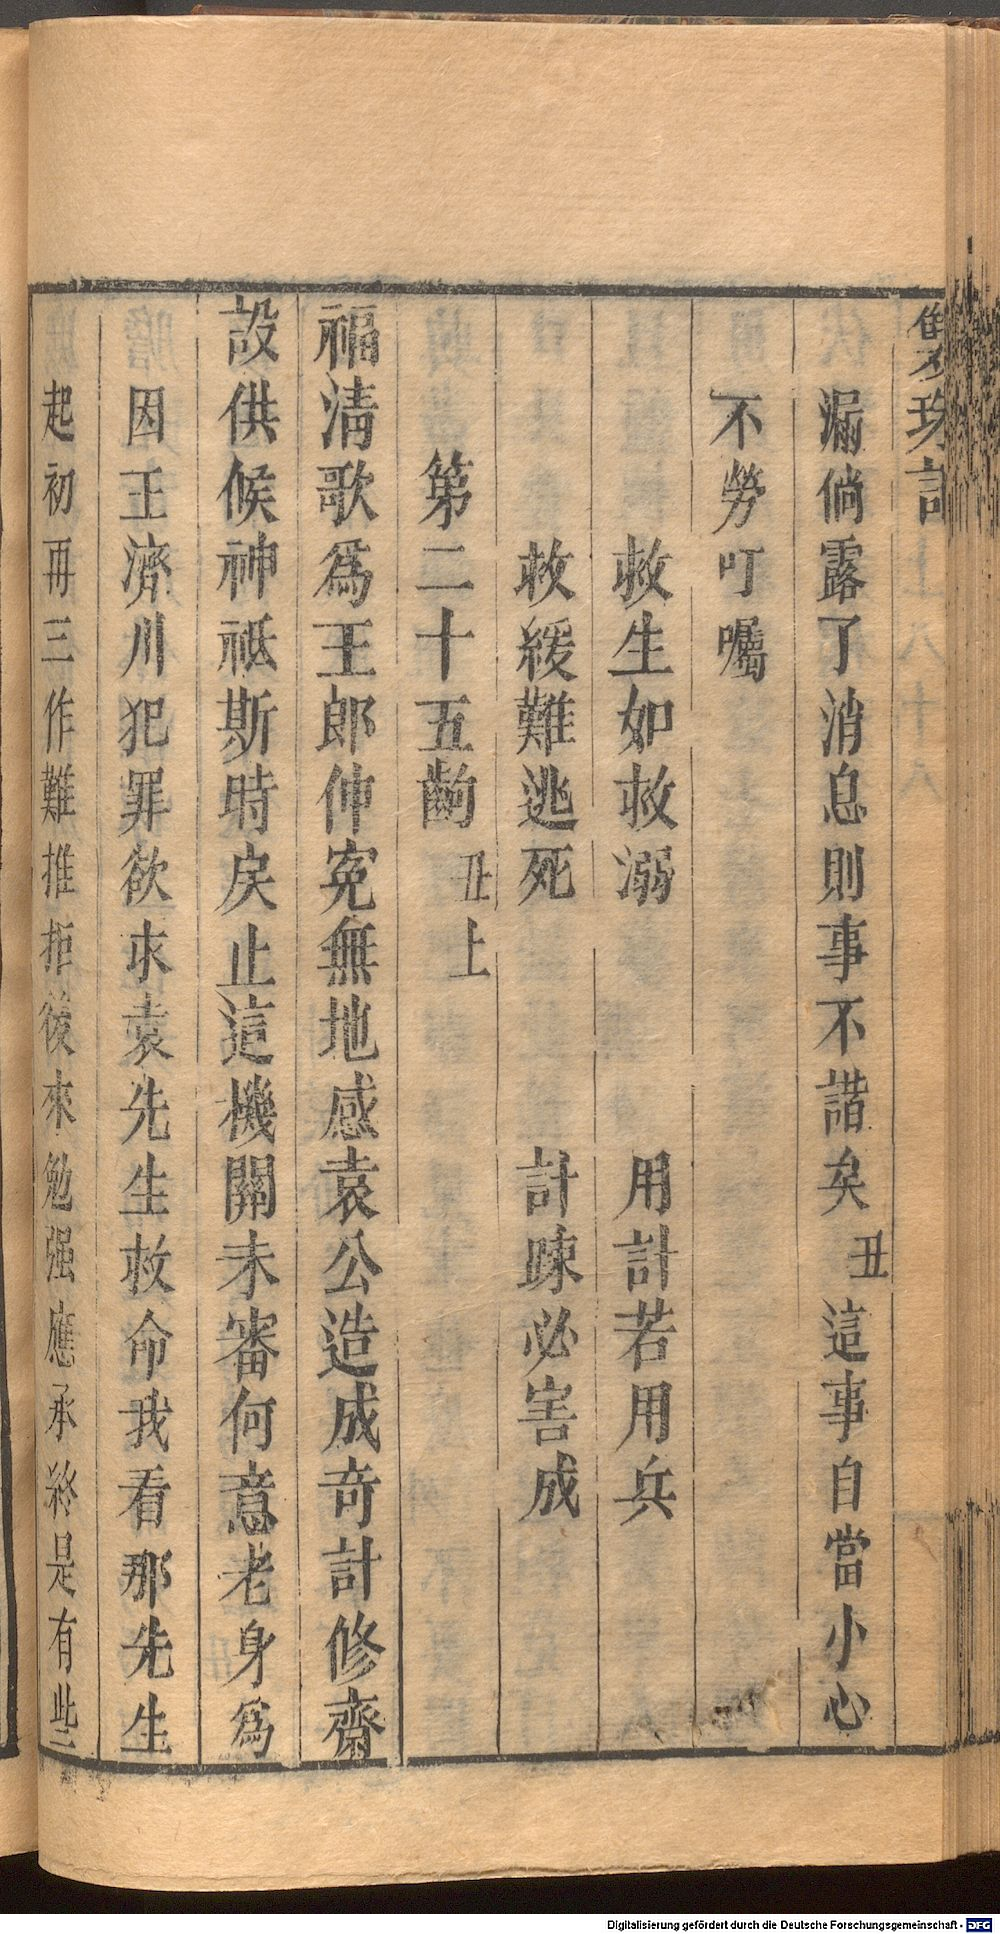 雙珠記
漏倘露了消息則事不諧矣丑這事自當小心
不勞叮囑
救生如救溺　用計若用兵
救緩難逃死　計踈必害成
第二十五齣　丑上
福清歌爲王郎伸寃無地感袁公造成奇計修齋
設供候神祇斯時戾止這機關未審何意老身爲
因王濟川犯罪欲求袁先生救命我看那先生
起初再三作難推拒後來勉强應承終是有些
Digitalisierung gefördert durch die Deutsche Forschungsgemeinschaft - DFG